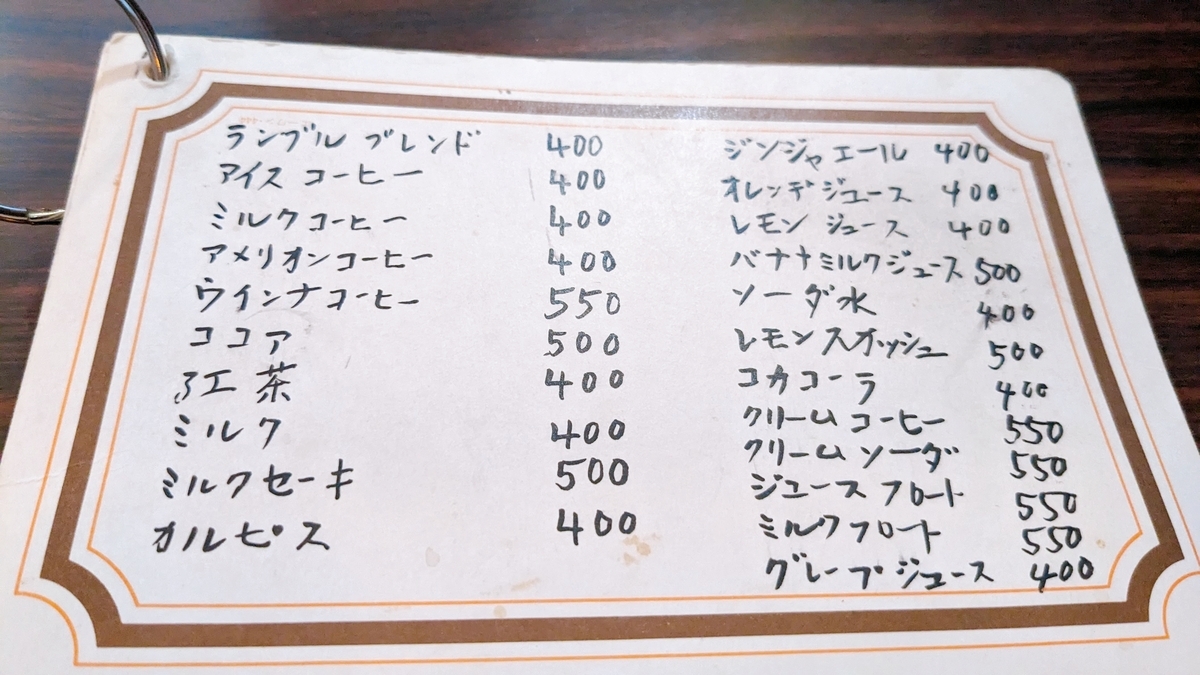 ランブル ブレンド 400
アイス コーヒー 400
ミルクコーヒー 400
アメリオンコーヒー 400
ウインナコーヒー 550
ココア 500
紅茶 400
ミルク 400
ミルクセーキ 500
カルピス 400
ジンジャエール 400
オレンヂジュース 400
レモン ジュース 400
バナナミルクジュース 500
ソーダ水 400
レモンスオッシュ 500
コカコーラ 400
クリーム コーヒー 550
クリーム ソーダ 550
ジュース フロート 550
ミルクフロート 550
グレープジュース 400